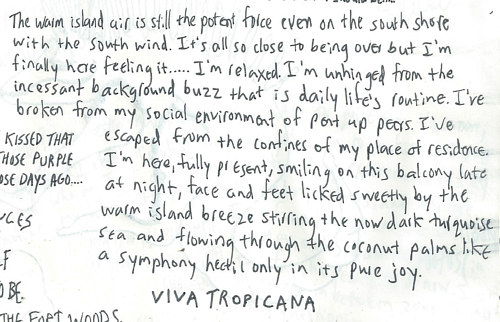 The warm island air is still the potent force even on the south shore
with the south wind. It's all so close to being over but I'm
finally here feeling it..... I'm relaxed. I'm unhinged from the
incessant background buzz that is daily life's routine. I've
broken from my social environment of pent up peers. I've
escaped from the confines of my place of residence.
I'm here, fully present, smiling on this balcony late
at night, face and feet licked sweetly by the
warm island breeze stirring the now dark turquoise
sea and flowing through the coconut palms like
a symphony hectil only in its pure joy.
VIVA TROPICANA
KISSED THAT
HOSE PURPLE
OSE DAYS AGO....
BE.
THE FORT WOODS.